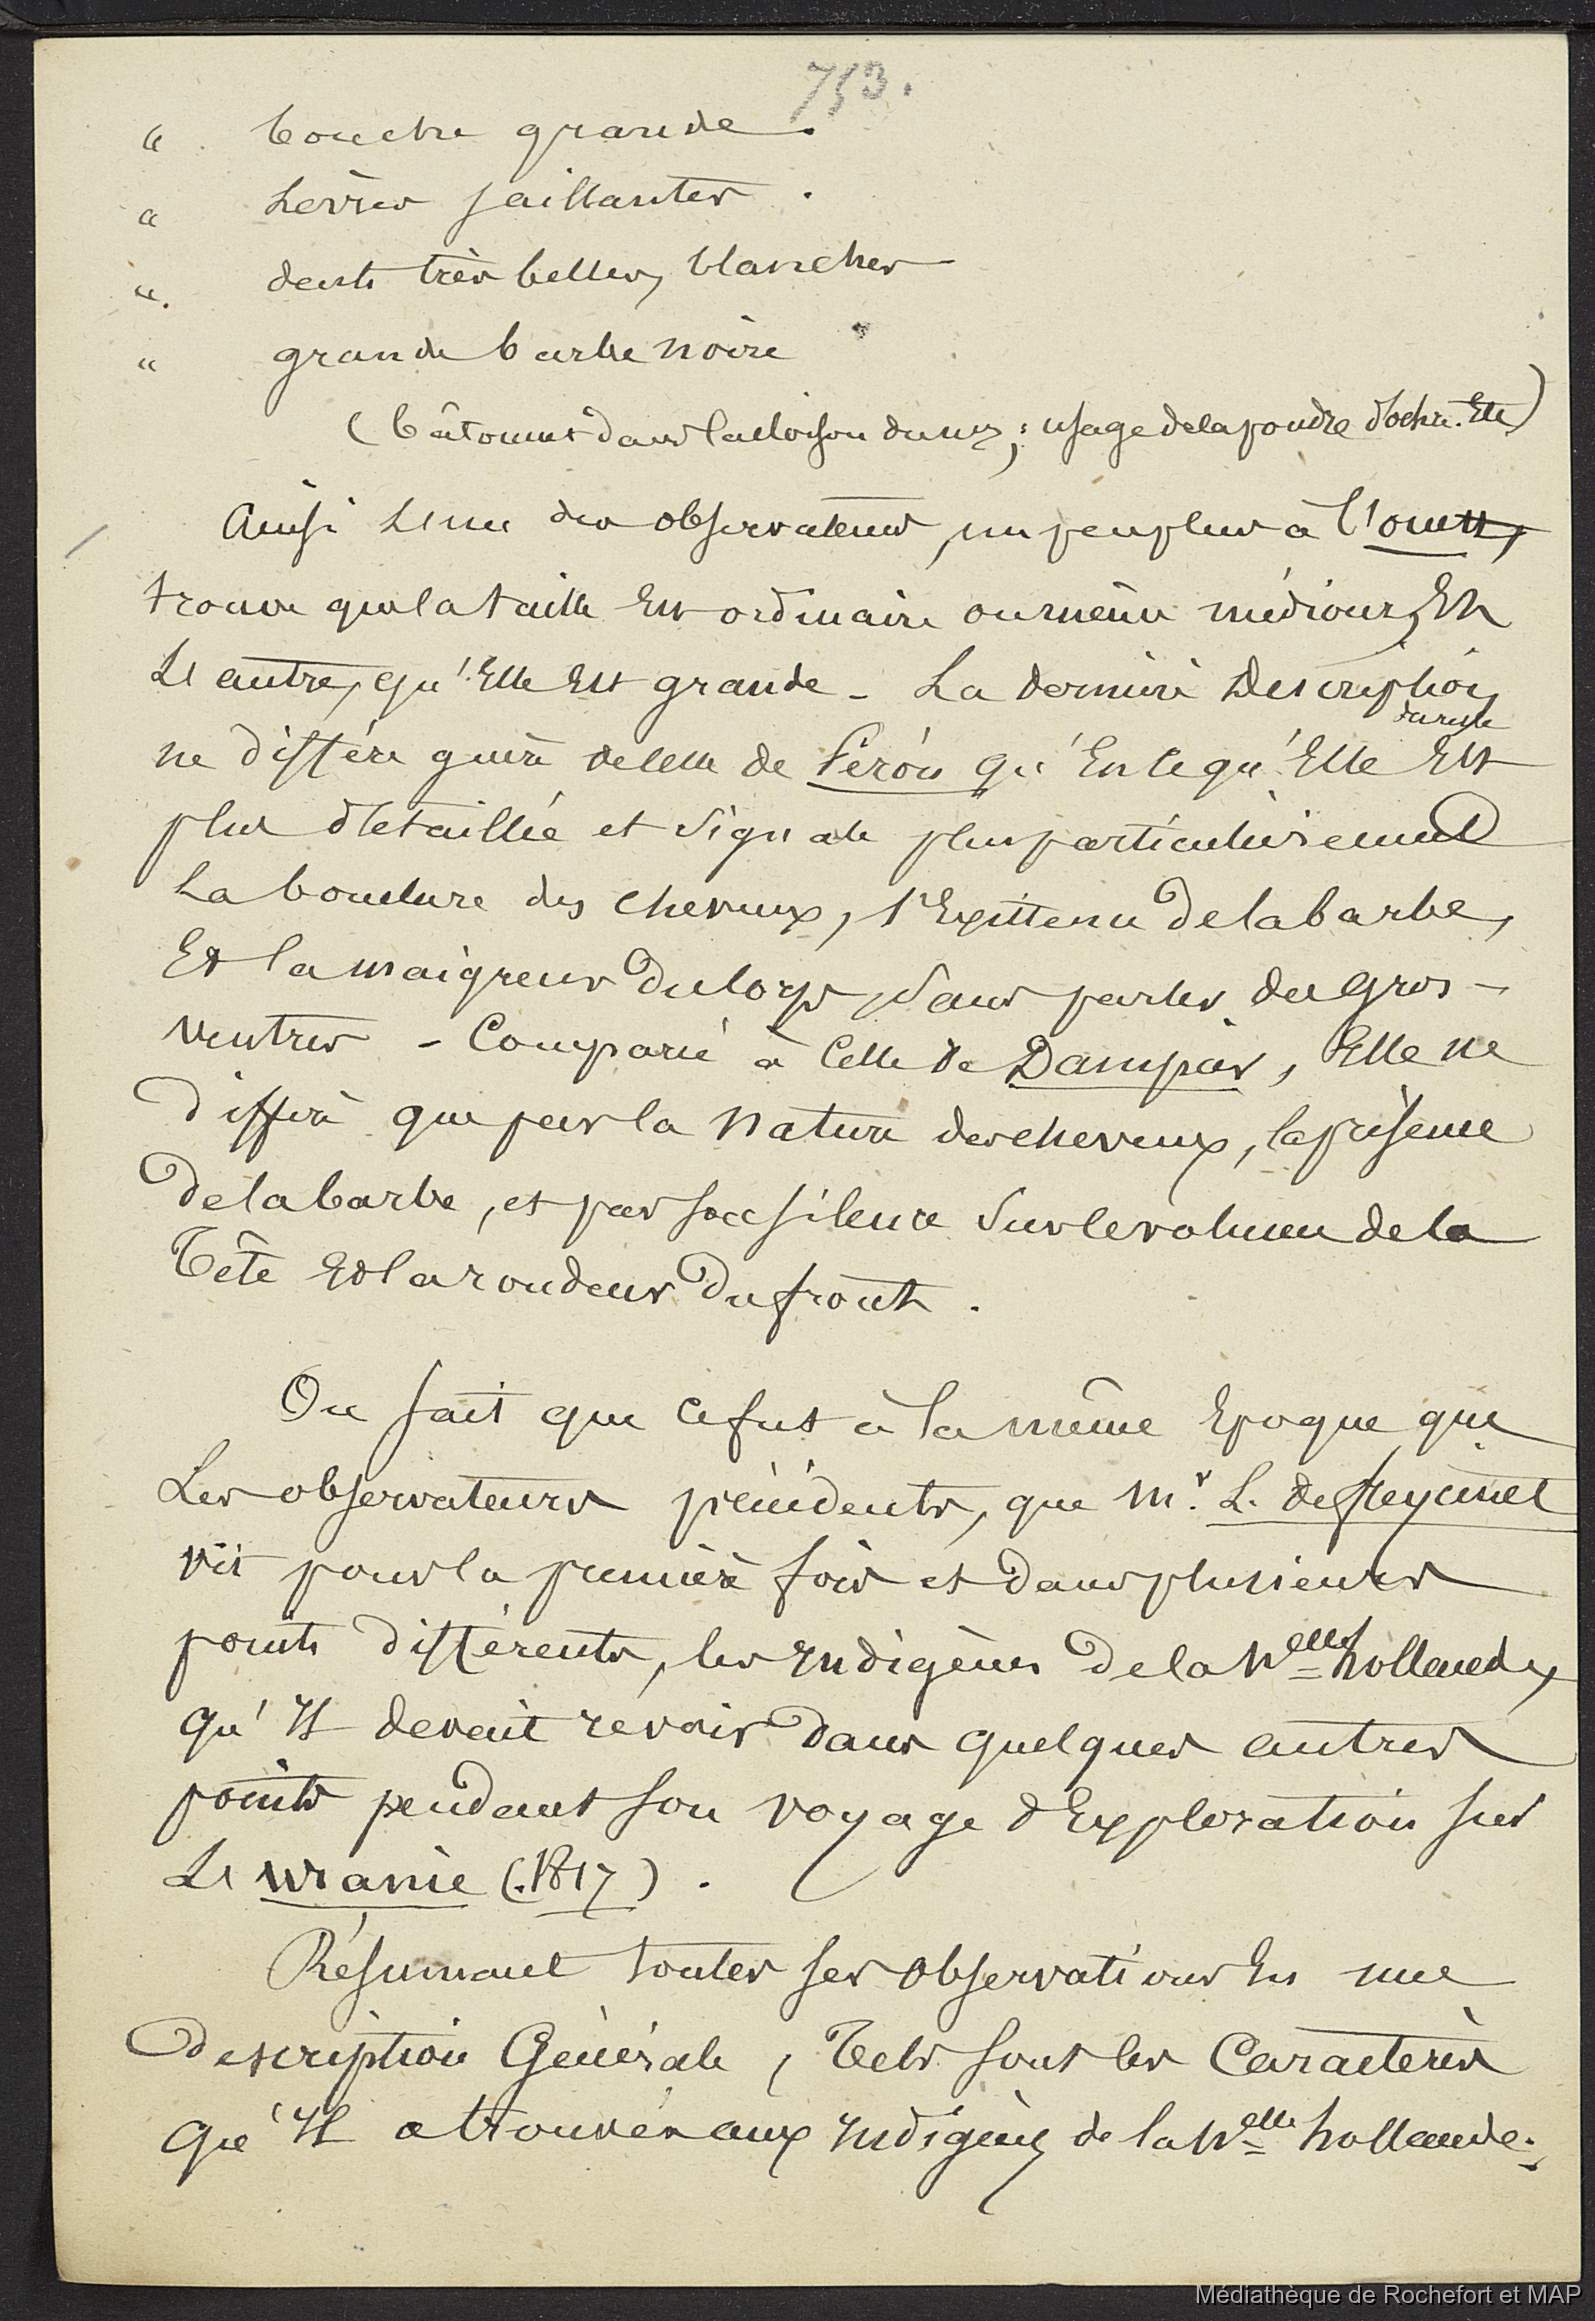 753.
" bouche grande.
" Lèvres saillantes.
". dents très belles, blanches
" grande barbe noire
(bâtonnet dans la cloison du nez; usage de la poudre d'ochre. Etc)
Ainsi L'un des observateurs, un peu plus à l'ouest,
trouve que la taille Est ordinaire ou même médiocre, Et
L'autre, qu'Elle Est grande - La dernière Description
du reste
ne diffère guère de celle de Péron qu'En ce qu'Elle Est
plus détaillée et signale plus particulièrement
La bouclure des cheveux, l'Existence de la barbe,
Et la maigreur du corps, sans parler des gros-
ventres - Comparée à Celle de Dampier, Elle ne
diffère que par la nature des cheveux, la présence
de la barbe, et par son silence sur le volume de la
Tête Et la rondeur du front.
On sait que ce fut à la même Epoque que
Les observateurs précédents, que Mr. L. de freycinet
vit pour la première fois et dans plusieurs
points différents, les Indigènes de la Nelle hollande,
qu'Il devait revoir dans quelques autres
points pendant son voyage d'Exploration sur
L'uranie (.1817).
Résumant toutes ses observations En une
description Générale, Tels sont les Caractères
qu'Il a trouvés aux Indigènes de la Nelle hollande:
Médiathèque de Rochefort et MAP